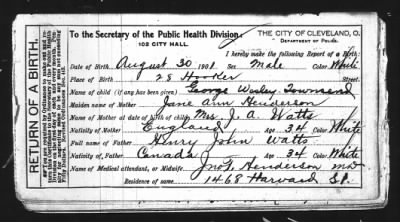 RETURN OF A BIRTH.
To the Secretary of the Public Health Division:
102 CITY HALL.
THE CITY OF CLEVELAND, O.
DEPARTMENT OF POLICE.
I hereby make the following Report of a Birth:
Date of Birth August 30 1901 Sex Male Color White
Place of Birth 28 Hooker Street.
Name of child (if any has been given) George Wesley Townsend
Maiden name of Mother Jane Ann Henderson
Name of Mother at date of birth of child, Mrs. J. A. Watts
Nativity of Mother England Age 34 Color White
Full name of Father Henry John Watts
Nativity of Father Canada Age 34 Color White
Name of Medical attendant, or Midwife Jno. Henderson MD
Residence of same 1468 Harvard St.